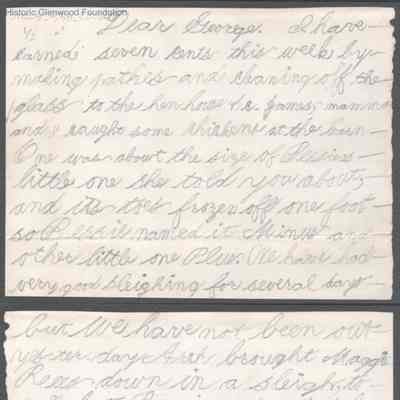 Historic Glenwood Foundation
Dear George. I have
earned seven cents this week by
making pathes and cleaning off the
glass to the hen house &c. James, mamma
and I caught some chickens at the barn
One was about the size of Bessies
little one she told you about,
and its toes frozen off one foot
so Bessie named it Minus and
other little one Plus. We have had
very good sleighing for several days
but We have not been out
yesterday brought Maggie
down in a sleigh to